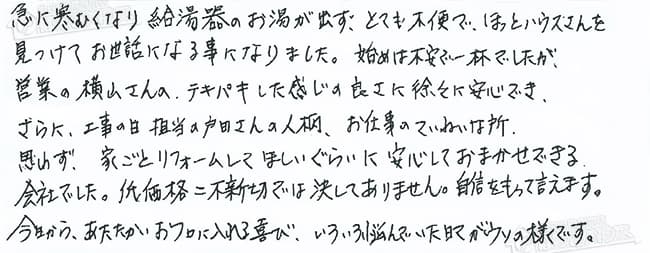 急に寒むくなり給湯器のお湯が出ず、とても不便で、ほっとハウスさんを
見つけてお世話になる事になりました。始めは不安で一杯でしたが、
営業の横山さんの、テキパキした感じの良さに徐々に安心でき、
さらに、工事の日担当の戸田さんの人柄、お仕事のていねいな所、
思わず、家ごとリフォームしてほしいぐらいに安心しておまかせできる
会社でした。低価格=不親切では決してありません。自信をもって言えます。
今日から、あたたかいおフロに入れる喜び、いろいろ悩んでいた日々がウソの様です。